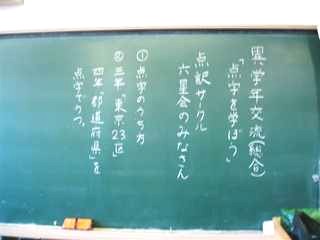 異学年交流(総合)
「点字を学ぼう」
点訳サークル
六星会のみなさん
①点字のうち方
②三年「東京23区」
四年「都道府県」を
点字でうつ。